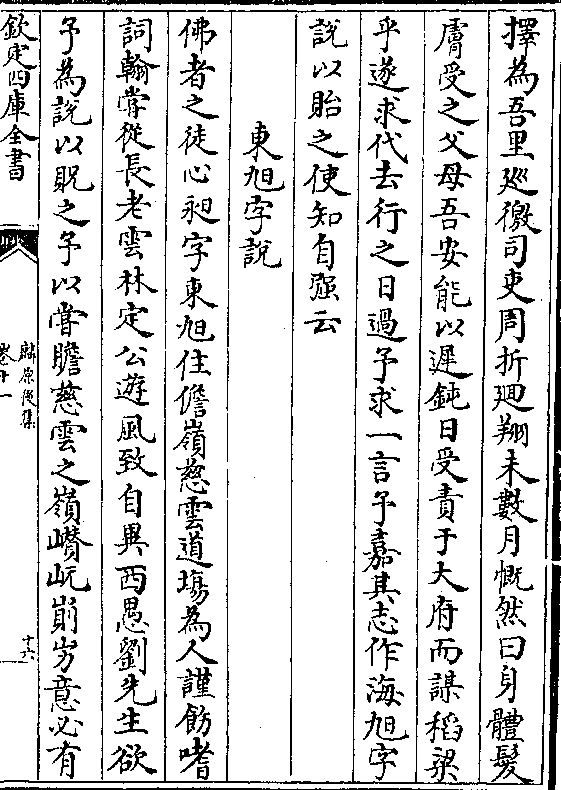 擇為吾里廵徼司吏周折廻翔未數月慨然曰身體髮
膚受之父母吾安能以遲鈍日受責于大府而謀稻粱
乎遂求代去行之日過予求一言予嘉其志作海旭字
說以貽之使知自强云
東旭字說
佛者之徒心昶字東旭住儋嶺慈雲道場為人謹飭嗜
詞翰嘗從長老雲林定公遊風致自異西愚劉先生欲
予為說以貺之予以嘗瞻慈雲之嶺巑岏崱屴意必有
欽定四庫全書
麟原後集
卷十一
十六